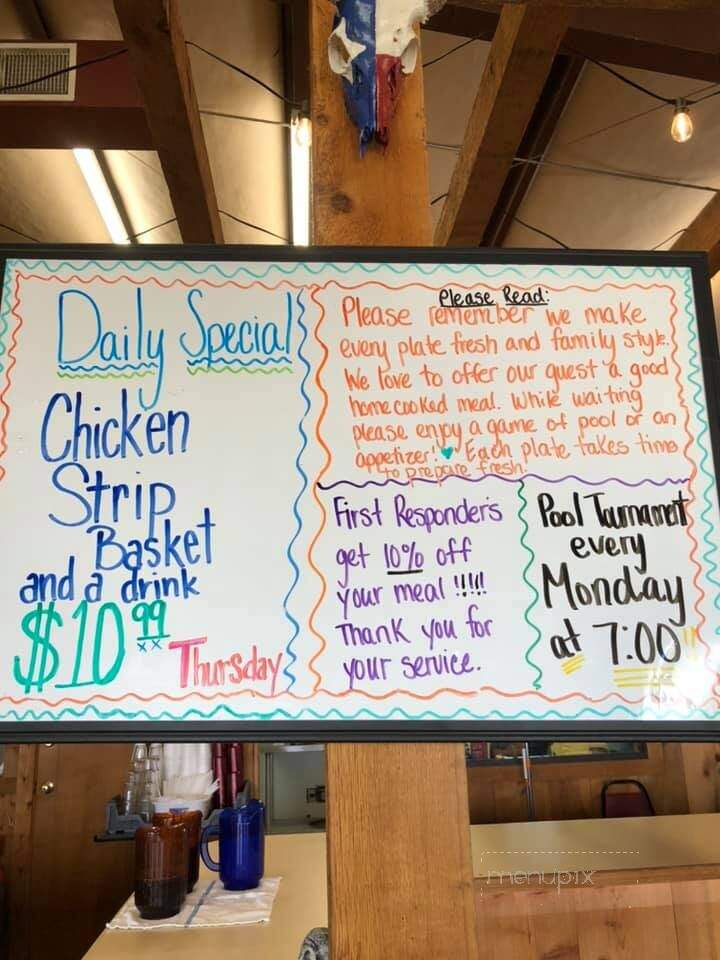 Daily Special
Chicken
Strip
Basket
and a drink
$10.99
Thursday
Please Read:
Please remember we make
every plate fresh and family style.
We love to offer our guest a good
home cooked meal. While waiting
please enjoy a game of pool or an
appetizer! Each plate takes time
to prepare fresh.
First Responders
get 10% off
your meal !!!!!
Thank you for
your service.
Pool Tournament
every
Monday
at 7:00!!
menupix